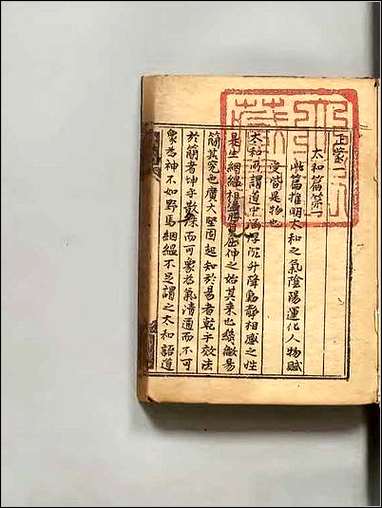 正蒙一
太和篇第一
此篇推明太和之氣陰陽運化人物賦
受皆是物也
太和所謂道中涵浮沉升降動靜相感之性
是生絪縕相盪屈伸之始其來也幾微易
簡其究也廣大堅固起知於易者乾乎效法
於簡者坤乎散殊而可象為氣清通而不可
象為神不如野馬絪縕不足謂之太和語道